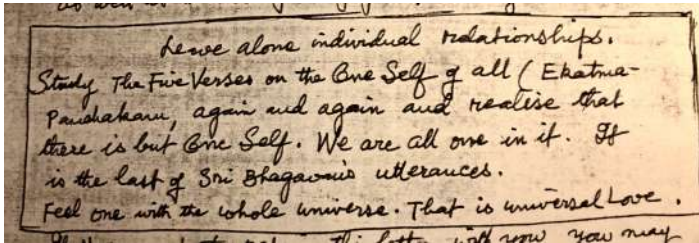 Leave alone individual relationships.
Study The Five Verses on the One Self of all (Ekatma-
Panchakam, again and again and realise that
there is but One Self. We are all one in it. It
is the last of Sri Bhagavan's utterances.
Feel one with the whole universe. That is universal Love.
this letter with you you may